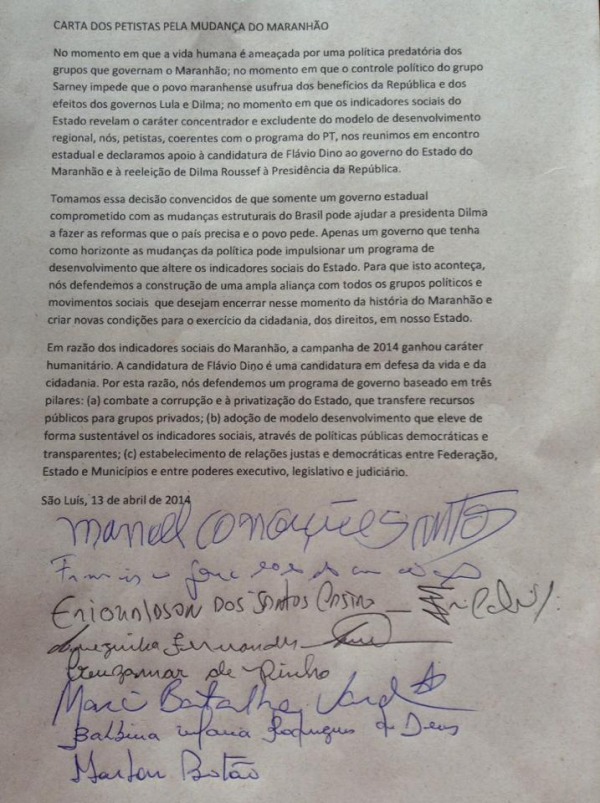 CARTA DOS PETISTAS PELA MUDANÇA DO MARANHÃO
No momento em que a vida humana é ameaçada por uma política predatória dos
grupos que governam o Maranhão; no momento em que o controle político do grupo
Sarney impede que o povo maranhense usufrua dos benefícios da República e dos
efeitos dos governos Lula e Dilma; no momento em que os indicadores sociais do
Estado revelam o caráter concentrador e excludente do modelo de desenvolvimento
regional, nós, petistas, coerentes com o programa do PT, nos reunimos em encontro
estadual e declaramos apoio à candidatura de Flávio Dino ao governo do Estado do
Maranhão e à reeleição de Dilma Roussef à Presidência da República.
Tomamos essa decisão convencidos de que somente um governo estadual
comprometido com as mudanças estruturais do Brasil pode ajudar a presidenta Dilma
a fazer as reformas que o país precisa e o povo pede. Apenas um governo que tenha
como horizonte as mudanças da política pode impulsionar um programa de
desenvolvimento que altere os indicadores sociais do Estado. Para que isto aconteça,
nós defendemos a construção de uma ampla aliança com todos os grupos políticos e
movimentos sociais que desejam encerrar nesse momento da história do Maranhão e
criar novas condições para o exercício da cidadania, dos direitos, em nosso Estado.
Em razão dos indicadores sociais do Maranhão, a campanha de 2014 ganhou caráter
humanitário. A candidatura de Flávio Dino é uma candidatura em defesa da vida e da
cidadania. Por esta razão, nós defendemos um programa de governo baseado em três
pilares: (a) combate a corrupção e à privatização do Estado, que transfere recursos
públicos para grupos privados; (b) adoção de modelo desenvolvimento que eleve de
forma sustentável os indicadores sociais, através de políticas públicas democráticas e
transparentes; (c) estabelecimento de relações justas e democráticas entre Federação,
Estado e Municípios e entre poderes executivo, legislativo e judiciário.
São Luís, 13 de abril de 2014
Manoel Conceição Santos
dos Santos
Fernandes
de Pinho
Batalha
Balbina Maria Rodrigues de Deus
Marlon Botão